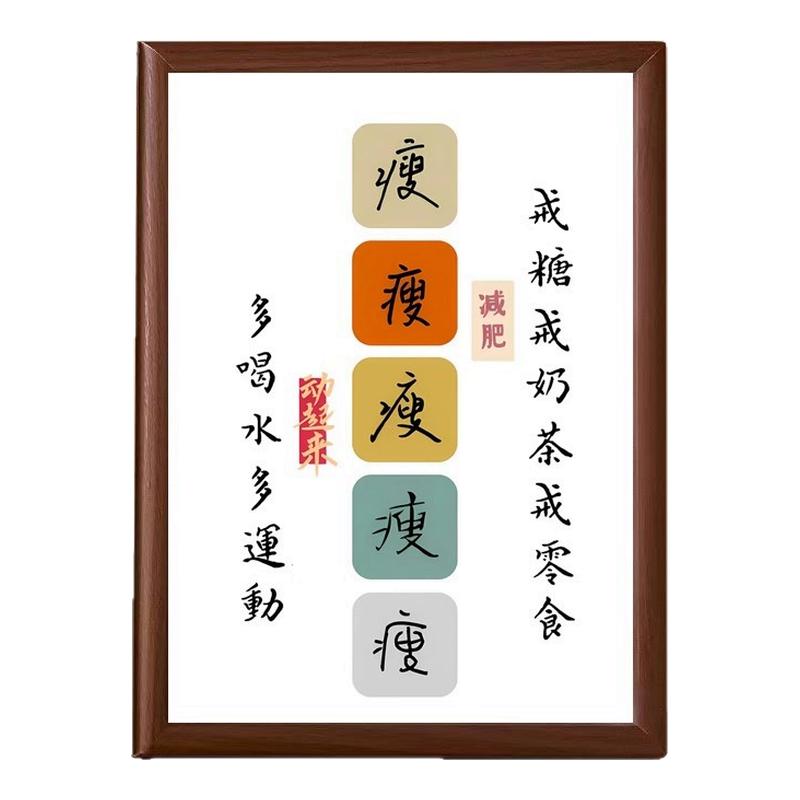 戒糖戒奶茶戒零食
减肥
瘦
瘦
瘦
瘦
瘦
动起来
多喝水多運動